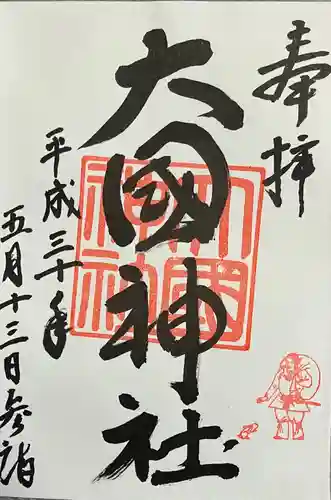 奉拝
大國神社
平成三十年
五月十三日参詣
大國神社